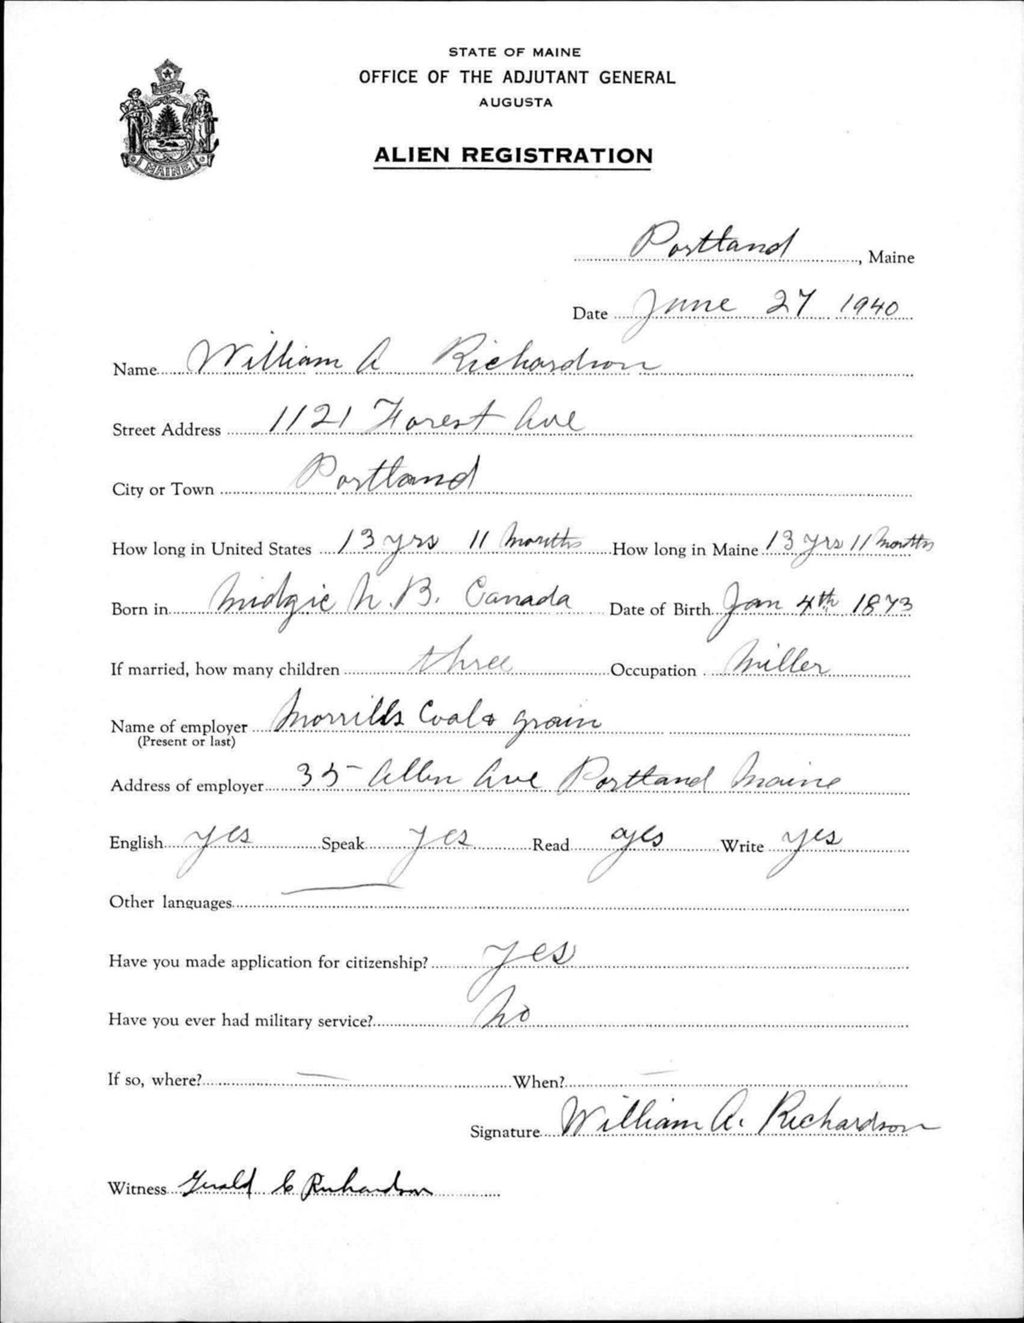 STATE OF MAINE
OFFICE OF THE ADJUTANT GENERAL
AUGUSTA
ALIEN REGISTRATION
MAINE
Portland, Maine
Date June 27 1940
Name William A Richardson
Street Address 1121 Forest Ave
City or Town Portland
How long in United States 13 yrs 11 months How long in Maine 13 yrs 11 months
Born in Midgic N.B. Canada Date of Birth Jan 4th 1873
If married, how many children three Occupation Miller
Name of employer Morrills Coal & grain
(Present or last)
Address of employer 35 Allen Ave Portland Maine
English yes Speak yes Read yes Write yes
Other languages
Have you made application for citizenship? yes
Have you ever had military service? No
If so, where? When?
Signature William A. Richardson
Witness Gerald C Richardson